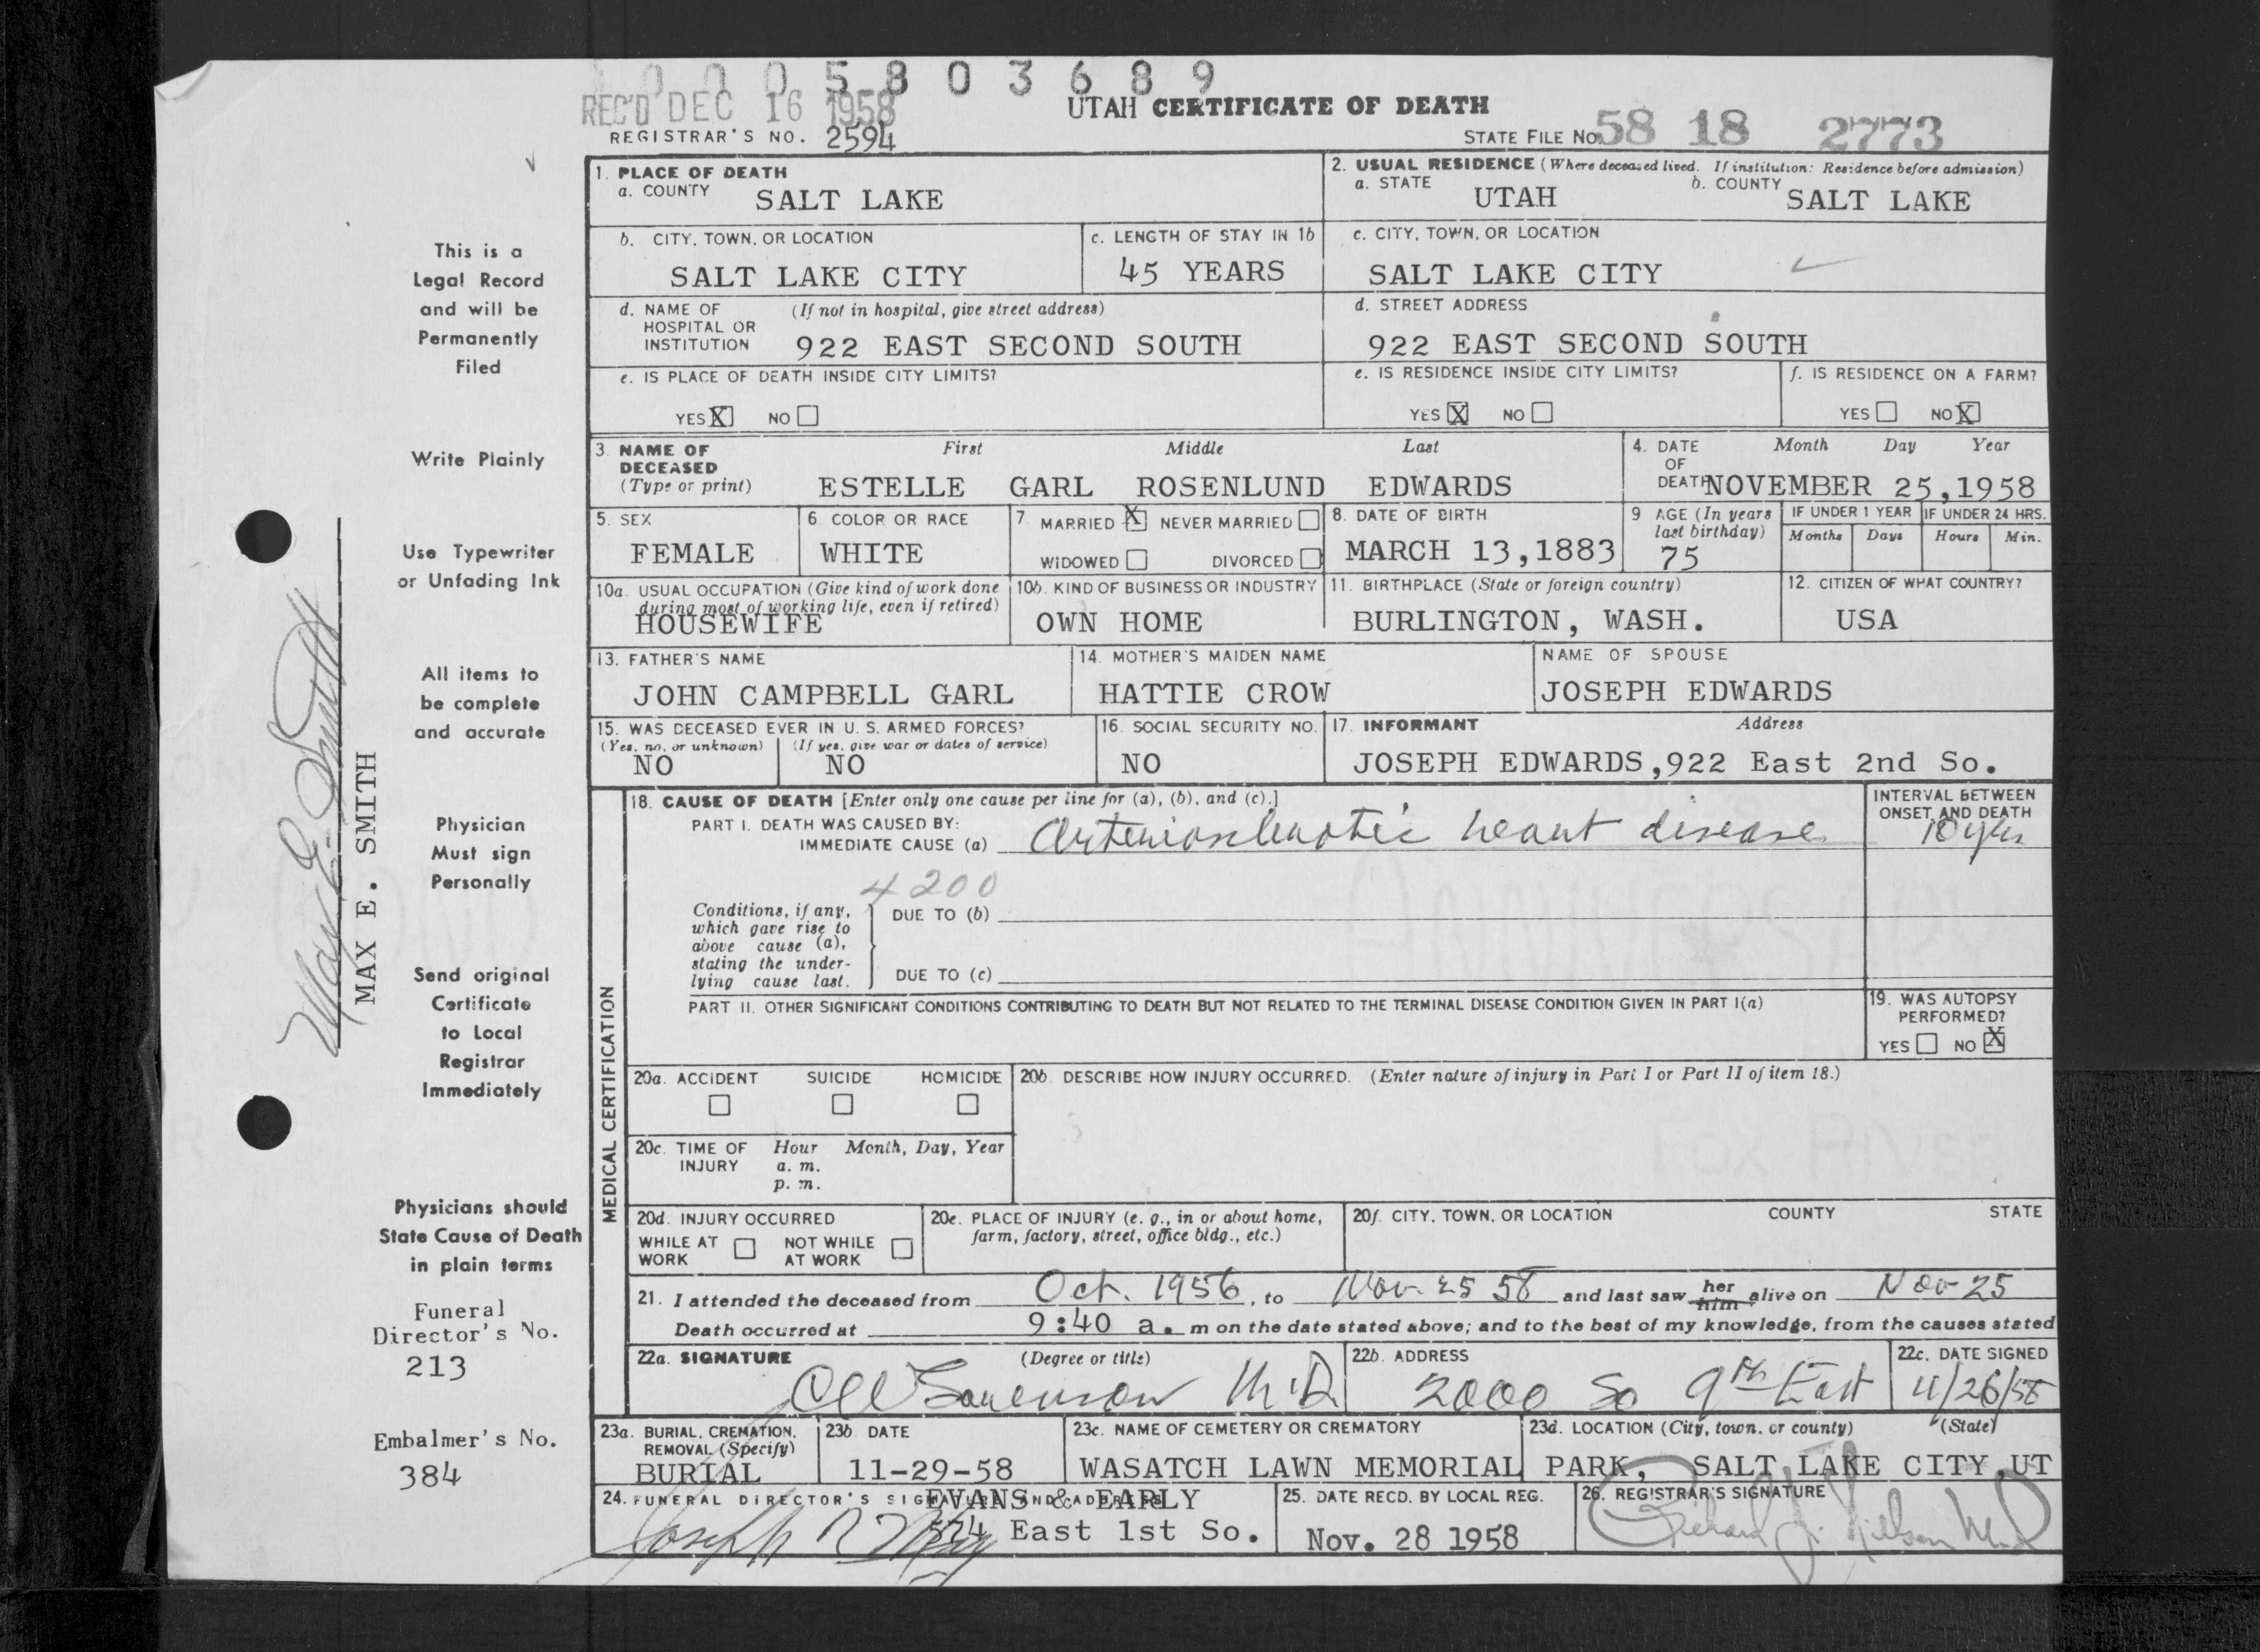 0 0 0 5 8 0 3 6 8 9
REC'D DEC 16 1958
UTAH CERTIFICATE OF DEATH
REGISTRAR'S NO. 2594
STATE FILE NO. 58 18 2773
1. PLACE OF DEATH
a. COUNTY SALT LAKE
2. USUAL RESIDENCE (Where deceased lived. If institution: Residence before admission)
a. STATE UTAH b. COUNTY SALT LAKE
b. CITY, TOWN, OR LOCATION SALT LAKE CITY
c. LENGTH OF STAY IN 1b 45 YEARS
c. CITY, TOWN, OR LOCATION SALT LAKE CITY
d. NAME OF HOSPITAL OR INSTITUTION (If not in hospital, give street address) 922 EAST SECOND SOUTH
d. STREET ADDRESS 922 EAST SECOND SOUTH
e. IS PLACE OF DEATH INSIDE CITY LIMITS? YES X NO
e. IS RESIDENCE INSIDE CITY LIMITS? YES X NO
f. IS RESIDENCE ON A FARM? YES NO X
3. NAME OF DECEASED (Type or print) First Middle Last
ESTELLE GARL ROSENLUND EDWARDS
4. DATE OF DEATH Month Day Year NOVEMBER 25,1958
5. SEX FEMALE
6. COLOR OR RACE WHITE
7. MARRIED X NEVER MARRIED
WIDOWED DIVORCED
8. DATE OF BIRTH MARCH 13,1883
9 AGE (In years last birthday) 75
IF UNDER 1 YEAR Months Days
IF UNDER 24 HRS. Hours Min.
10a. USUAL OCCUPATION (Give kind of work done during most of working life, even if retired) HOUSEWIFE
10b. KIND OF BUSINESS OR INDUSTRY OWN HOME
11. BIRTHPLACE (State or foreign country) BURLINGTON, WASH.
12. CITIZEN OF WHAT COUNTRY? USA
13. FATHER'S NAME JOHN CAMPBELL GARL
14. MOTHER'S MAIDEN NAME HATTIE CROW
NAME OF SPOUSE JOSEPH EDWARDS
15. WAS DECEASED EVER IN U. S. ARMED FORCES?
(Yes, no, or unknown) NO (If yes, give war or dates of service) NO
16. SOCIAL SECURITY NO. NO
17. INFORMANT Address JOSEPH EDWARDS,922 East 2nd So.
MEDICAL CERTIFICATION
18. CAUSE OF DEATH [Enter only one cause per line for (a), (b), and (c).]
PART I. DEATH WAS CAUSED BY:
IMMEDIATE CAUSE (a) Arteriosclerotic heart disease
INTERVAL BETWEEN ONSET AND DEATH 10 yrs
4200
Conditions, if any, which gave rise to above cause (a), stating the underlying cause last.
DUE TO (b)
DUE TO (c)
PART II. OTHER SIGNIFICANT CONDITIONS CONTRIBUTING TO DEATH BUT NOT RELATED TO THE TERMINAL DISEASE CONDITION GIVEN IN PART I(a)
19. WAS AUTOPSY PERFORMED? YES NO X
20a. ACCIDENT SUICIDE HOMICIDE
20b. DESCRIBE HOW INJURY OCCURRED. (Enter nature of injury in Part I or Part II of item 18.)
20c. TIME OF INJURY Hour a. m. p. m. Month, Day, Year
20d. INJURY OCCURRED WHILE AT WORK NOT WHILE AT WORK
20e. PLACE OF INJURY (e. g., in or about home, farm, factory, street, office bldg., etc.)
20f. CITY, TOWN, OR LOCATION COUNTY STATE
21. I attended the deceased from Oct. 1956, to Nov. 25 58 and last saw her him alive on Nov 25
Death occurred at 9:40 a. m on the date stated above; and to the best of my knowledge, from the causes stated
22a. SIGNATURE (Degree or title) Sorenson M.D.
22b. ADDRESS 2000 So 9th East
22c. DATE SIGNED 11/26/58
23a. BURIAL, CREMATION, REMOVAL (Specify) BURIAL
23b. DATE 11-29-58
23c. NAME OF CEMETERY OR CREMATORY WASATCH LAWN MEMORIAL PARK,
23d. LOCATION (City, town, or county) (State) SALT LAKE CITY,UT
24. FUNERAL DIRECTOR'S SIGNATURE AND ADDRESS EVANS & EARLY
574 East 1st So.
25. DATE RECD. BY LOCAL REG. Nov. 28 1958
26. REGISTRAR'S SIGNATURE
This is a
Legal Record
and will be
Permanently
Filed
Write Plainly
Use Typewriter
or Unfading Ink
All items to
be complete
and accurate
Physician
Must sign
Personally
Send original
Certificate
to Local
Registrar
Immediately
Physicians should
State Cause of Death
in plain terms
Funeral
Director's No.
213
Embalmer's No.
384
Max E. Smith
MAX E. SMITH